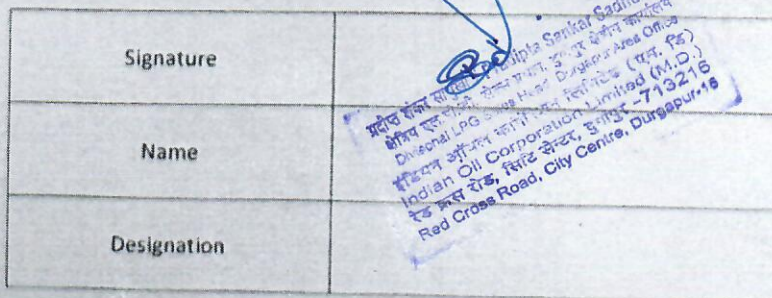 Signature
Name
Designation
Sankar Sadhu
Divisional LPG Sales Head, Durgapur Area Office
इंडियन ऑयल कार्पोरेशन लिमिटेड (एम. डि)
Indian Oil Corporation Limited (M.D.)
रेड क्रस रोड, सिटि सेन्टर, दुर्गापुर -713216
Red Cross Road, City Centre, Durgapur-16